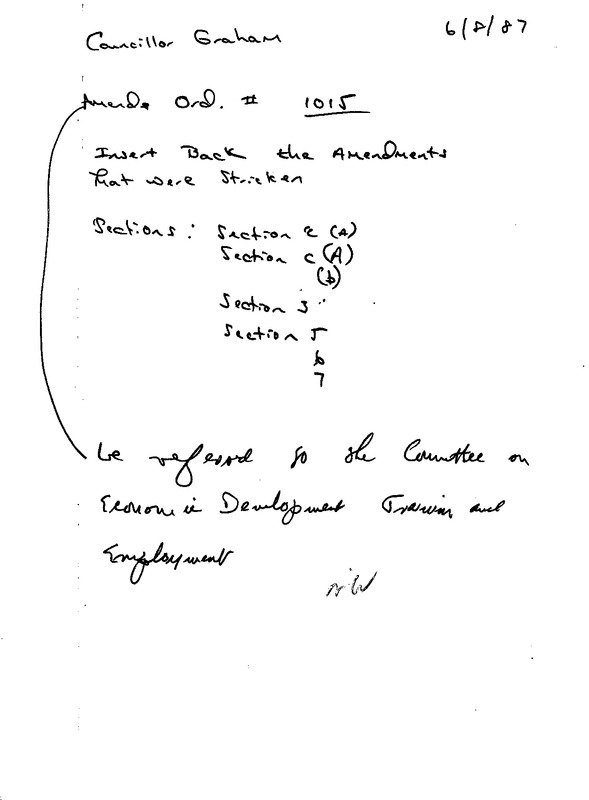 6/8/87
Councillor Graham
Amends Ord. # 1015
Insert Back the Amendments
that were Stricken
Sections: Section 2 (A)
Section c (A)
(b)
Section 3
Section 5
6
7
be referred to the Committee on
Economic Development Training and
Employment